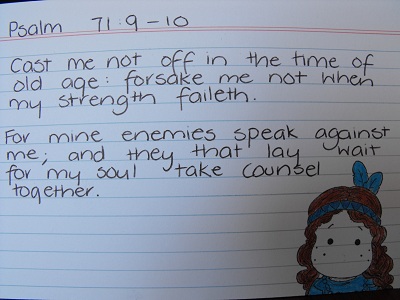 Psalm 71:9-10
Cast me not off in the time of
old age: forsake me not when
my strength faileth.
For mine enemies speak against
me; and they that lay wait
for my soul take counsel
together.